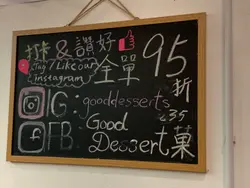 打卡 & 讚好
Tag / Like our
instagram
全單 95折
IG : gooddesserts
FB : Good
Dessert 菓